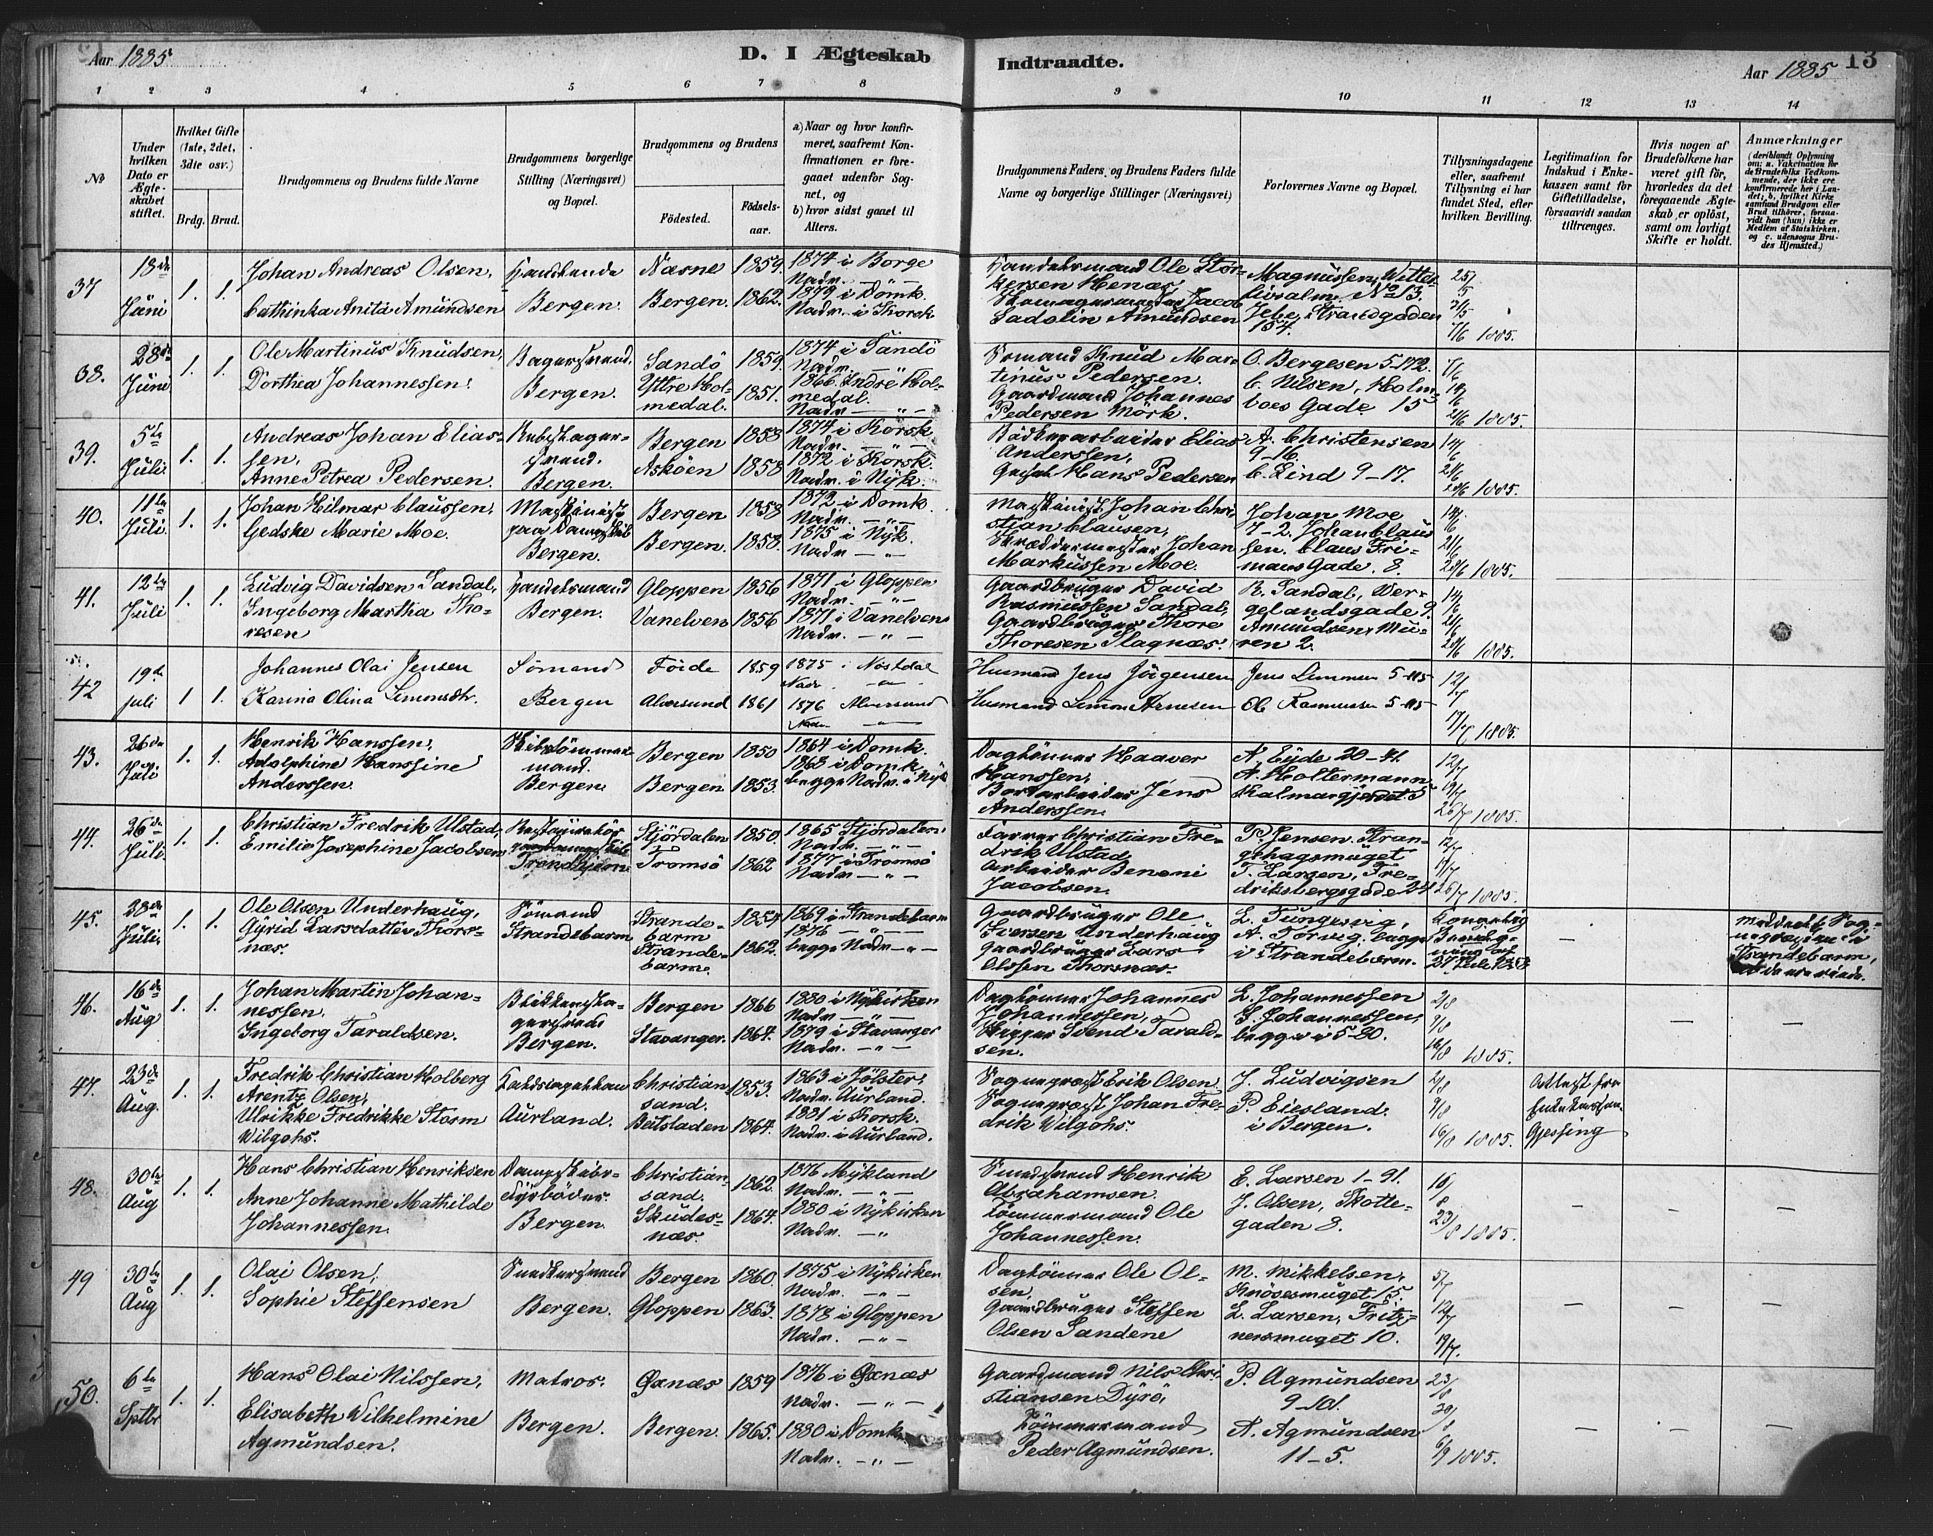 Aar 1885
D. I Ægteskab
Indtraadte.
Aar 1885
13
1 2 3 4 5 6 7 8 9 10 11 12 13 14
No
Under hvilken Dato er Ægteskabet stiftet.
Hvilket Gifte (1ste, 2det, 3die osv.)
Brdg. Brud.
Brudgommens og Brudens fulde Navne
Brudgommens borgerlige Stilling (Næringsvei) og Bopæl.
Brudgommens og Brudens
Födested.
Födselsaar.
a) Naar og hvor konfirmeret, saafremt Konfirmationen er foregaaet udenfor Sognet, og
b) hvor sidst gaaet til Alters.
Brudgommens Faders og Brudens Faders fulde Navne og borgerlige Stillinger (Næringsvei)
Forlovernes Navne og Bopæl.
Tillysningsdagene eller, saafremt Tillysning ei har fundet Sted, efter hvilken Bevilling.
Legitimation for Indskud i Enkekassen samt for Giftetilladelse, forsaavidt saadan tiltrænges.
Hvis nogen af Brudefolkene har været gift för, hvorledes da det foregaaende Ægteskab er oplöst, samt om lovligt Skifte er holdt.
Anmærkninger
(deriblandt Oplysning om: a. Vakcination for de Brudefolks Vedkommende, der ikke ere konfirmerede her i Landet; b. hvilket Kirkesamfund Brudgom eller Brud tilhörer, forsaavidt han (hun) ikke er Medlem af Statskirken, og c. udensogns Brudes Hjemsted.)
37. 18de Juni 1. 1.
Johan Andreas Olsen,
Cathinka Anita Amundsen
Handlende
Bergen.
Næsne 1859.
Bergen. 1862.
1874 i Borge
Nadv. — „ —
1879 i Domk.
Nadv. i Korsk.
Handelsmand Ole
Jacob
Sadolin Amundsen
Magnussen,
No 13.
Jebe, Strandgaden
154.
7/6 1885.
38. 28de Juni 1. 1.
Ole Martinus Knudsen,
Dorthea Johannessen.
Bagersvend.
Bergen.
Sandö 1859.
Yttre Holmedal. 1851.
1874 i Sandö
Nadv. — „ —
1866 Indre Holmedal.
Nadv. — „ —
Sömand Knud Martinus Pedersen.
Gaardmand Johannes
Pedersen Mörk.
O. Bergesen 5-172.
C. Nilsen, Holmboes Gade 15
21/6 1885.
39. 5te Juli. 1. 1.
Andreas Johan Eliassen,
Anne Petrea Pedersen.
Bergen.
Bergen 1858
Askøen 1858
1874 i Korsk.
Nadv. — „ —
1872 i Korsk.
Nadv. i Nyk.
Bödkerarbeider Elias
Anderssen,
Hans Pedersen
A. Christensen
9-16.
C. Lind 9-17.
28/6 1885.
40. 11te Juli. 1. 1.
Johan Hilmar Claussen,
Gedske Marie Moe.
Maskinist
paa Dampskib
Bergen.
Bergen 1858
Bergen. 1858.
1872 i Domk.
Nadv. — „ —
1875 i Nyk.
Nadv. — „ —
Maskinist Johan Christian Clausen,
Skræddermester Johan
Markussen Moe.
Johan Moe
7-2. Johan Claussen. Claus Frimans Gade. 8.
28/6 1885.
41. 12te Juli 1. 1.
Ludvig Davidsen Sandal,
Ingeborg Martha Thoresen
Handelsmand
Bergen.
Gloppen 1856
Vanelven 1856
1871 i Gloppen
Nadv. — „ —
1871 i Vanelven
Nadv. — „ —
Gaardbruger David
Rasmussen Sandal,
Gaardbruger Thore
Thoresen Slagnæs.
R. Sandal, Vergelandsgade 9.
Amundsen, Muren 2.
28/6 1885.
42 19de juli 1 1.
Johannes Olai Jensen
Karina Olina Simonsdtr.
Sömand
Bergen
Förde 1859
Alversund 1861
1875 i Nostdal
Nadv. — „ —
1876 Alversund
Nadv. — „ —
Husmand Jens Jörgensen
Husmand Simon Arnesen
Jens Simmen 5-115
Ol. Rasmussen 5-115
12/7
1885
43. 26de Juli 1. 1.
Henrik Hanssen,
Adolphine Hanssine
Anderssen.
Bergen.
Bergen 1850
Bergen 1853.
1864 i Domk.
1868 i Domk.
begge Nadv. i Nyk
Daglönner Haaver
Hanssen,
Jens
Anderssen.
A. Eyde 20-41.
A. Holtermann
Kalmargjerdet 5
12/7
19/7
26/7 1885.
44. 26de Juli 1. 1.
Christian Fredrik Ulstad,
Emilie Josephine Jacobsen
Trondhjem
Stjördalen 1850.
Tromsö 1862
1865 Stjördalen.
Nadv. — „ —
1877 i Tromsö
Nadv. — „ —
Farver Christian Fredrik Ulstad
Arbeider Benoni
Jacobsen.
P. Jensen. Stranghagsmuget
T. Larsen, Fredriksbergsgade 24
12/7
19/7
26/7 1885.
45. 28de Juli. 1. 1.
Ole Olsen Underhaug,
Gyrid Larsdatter Thorsnæs.
Sömand
Strandebarm
Strandebarm 1854
Strandebarm. 1862.
1869 i Strandebarm
1876 — „ —
begge Nadv. — „ —
Gaardbruger Ole
Iversen Underhaug
Gaardbruger Lars
Olssen Thorsnæs.
L. Tungesvig,
A. Torvig, begge
i Strandebarm.
Kongebrev
—
—
Strandebarm,
46. 16de Aug 1. 1.
Johan Martin Johannessen.
Ingeborg Taraldsen.
Bergen.
Bergen 1866
Stavanger. 1864.
1880 i Nykirken
Nadv. — „ —
1879 i Stavanger
Nadv. — „ —
Daglönner Johannes
Johannessen,
Svend Taraldsen.
L. Johannessen
S. Johannessen,
begge i 5-20.
2/8
9/8
16/8 1885.
—
—
47. 23de Aug. 1. 1.
Fredrik Christian Holberg
Arentz Olsen,
Ulrikke Fredrikke Storm
Wilgohs.
Aurland.
Christiansand. 1853.
Beitstaden 1864.
1863 i Jölster,
Nadv. Aurland.
1881 i Korsk.
Nadv. i Aurland.
Sogneprest Erik Olsen,
Sogneprest Johan Fredrik Wilgohs.
J. Ludvigsen
P. Eiesland.
i Bergen.
2/8
9/8
16/8 1885.
Attest fra
Enkekassen.
Gjessing
48. 30te Aug 1. 1.
Hans Christian Henriksen
Anne Johanne Mathilde
Johannessen.
Dampskibsfyrböder.
Bergen.
Christiansand. 1862.
Skudesnæs. 1864.
1876 Mykland
Nadv. — „ —
1880 i Nykirken
Nadv. — „ —
Henrik
Abrahamsen.
Tömmermand Ole
Johannessen.
E. Larsen 1-91.
J. Olsen, Skottegaden 8.
16/8
23/8 1885.
—
—
—
49 30te Aug 1. 1.
Olai Olsen,
Sophie Steffensen
Bergen.
Bergen 1860.
Gloppen 1863.
1875 i Nykirken
Nadv. — „ —
1878 i Gloppen
Nadv. — „ —
Daglönner Ole Olsen.
Gaardbruger Steffen
Olsen Sandene
M. Mikkelsen,
Knosesmuget 15.
L. Larsen, Fritznersmuget 10.
5/7
12/7
19/7.
—
—
—
50. 6te Sptbr 1. 1.
Hans Olai Nilssen,
Elisabeth Wilhelmine
Agmundsen.
Matros.
Bergen.
Øxnæs 1859
Bergen. 1865.
1876 i Øxnæs
Nadv. — „ —
1880 i Domk.
Nadv. — „ —
Gaardmand Nils Christiansen Dyrö,
Tömmermand
Peder Agmundsen.
P. Agmundsen
A. Agmundsen
11-5.
23/8
30/8
6/9 1885.
—
—
—